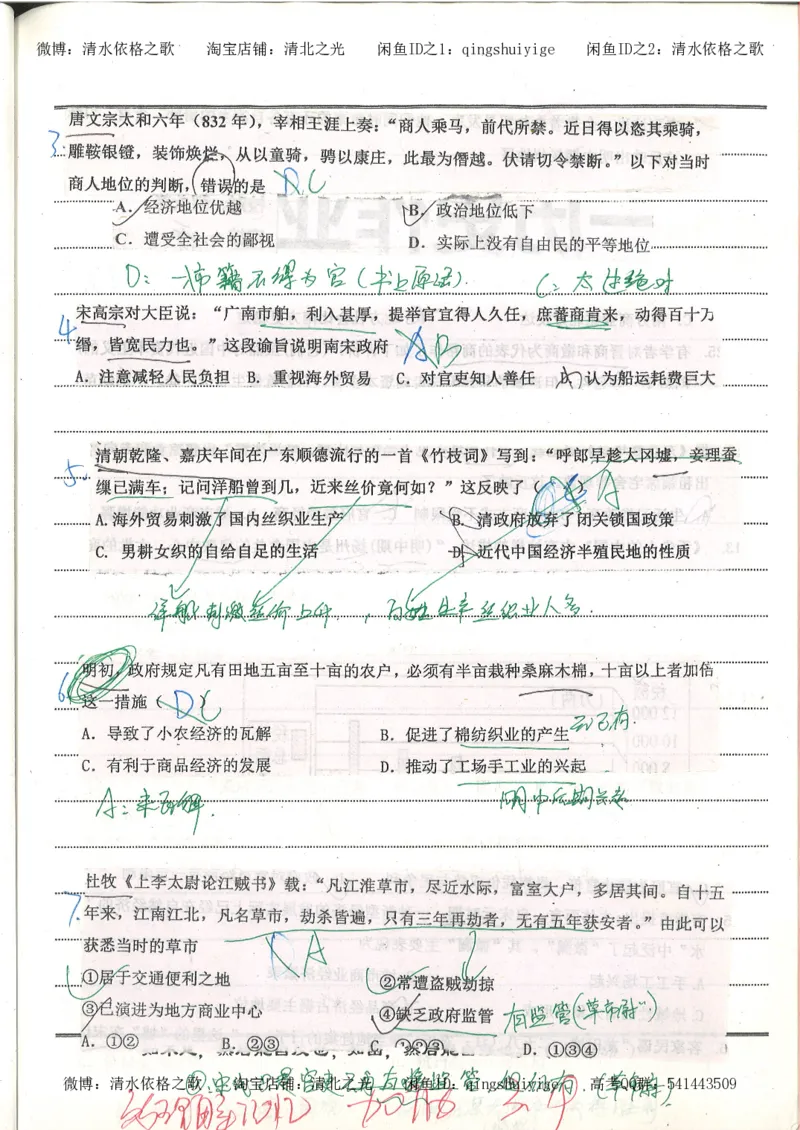 微博：清水依格之歌 淘宝店铺：清北之光 闲鱼ID之1：qingshuiyige 闲鱼ID之2：清水依格之歌
唐文宗太和六年（832 年），宰相王涯上奏：“商人乘马，前代所禁。近日得以恣其乘骑，
3.
雕鞍银镫，装饰焕烂，从以童骑，骋以康庄，此最为僭越。伏请切令禁断。”以下对当时
商人地位的判断，错误的是 C
A．经济地位优越 B．政治地位低下
C．遭受全社会的鄙视 D．实际上没有自由民的平等地位
D：市籍不得为官（书上原话）. C：太过绝对
宋高宗对大臣说：“广南市舶，利入甚厚，提举官宜得人久任，庶蕃商肯来，动得百十万
4.
缗，皆宽民力也。”这段谕旨说明南宋政府 B
A．注意减轻人民负担 B．重视海外贸易 C．对官吏知人善任 D．认为船运耗费巨大
清朝乾隆、嘉庆年间在广东顺德流行的一首《竹枝词》写到：“呼郎早趁大冈墟，妾理蚕
5.
缫已满车；记问洋船曾到几，近来丝价竟何如？”这反映了（ ） A
A.海外贸易刺激了国内丝织业生产 B．清政府放弃了闭关锁国政策
C．男耕女织的自给自足的生活 D．近代中国经济半殖民地的性质
洋船刺激丝价上升，百姓生产丝织业人多.
明初，政府规定凡有田地五亩至十亩的农户，必须有半亩栽种桑麻木棉，十亩以上者加倍
6.
这一措施（ ） C
A．导致了小农经济的瓦解 B．促进了棉纺织业的产生
C．有利于商品经济的发展 D．推动了工场手工业的兴起
A：未瓦解. 明中后期兴起
杜牧《上李太尉论江贼书》载：“凡江淮草市，尽近水际，富室大户，多居其间。自十五
7.
年来，江南江北，凡名草市，劫杀皆遍，只有三年再劫者，无有五年获安者。”由此可以
获悉当时的草市 A
①居于交通便利之地 ②常遭盗贼劫掠
③已演进为地方商业中心 ④缺乏政府监管 有监管(草市尉)
A．①② B．②③ C．①②③ D．①③④
微博：清水依格之歌 淘宝店铺：清北之光 闲鱼ID：qingshuiyige 高考QQ群：541443509